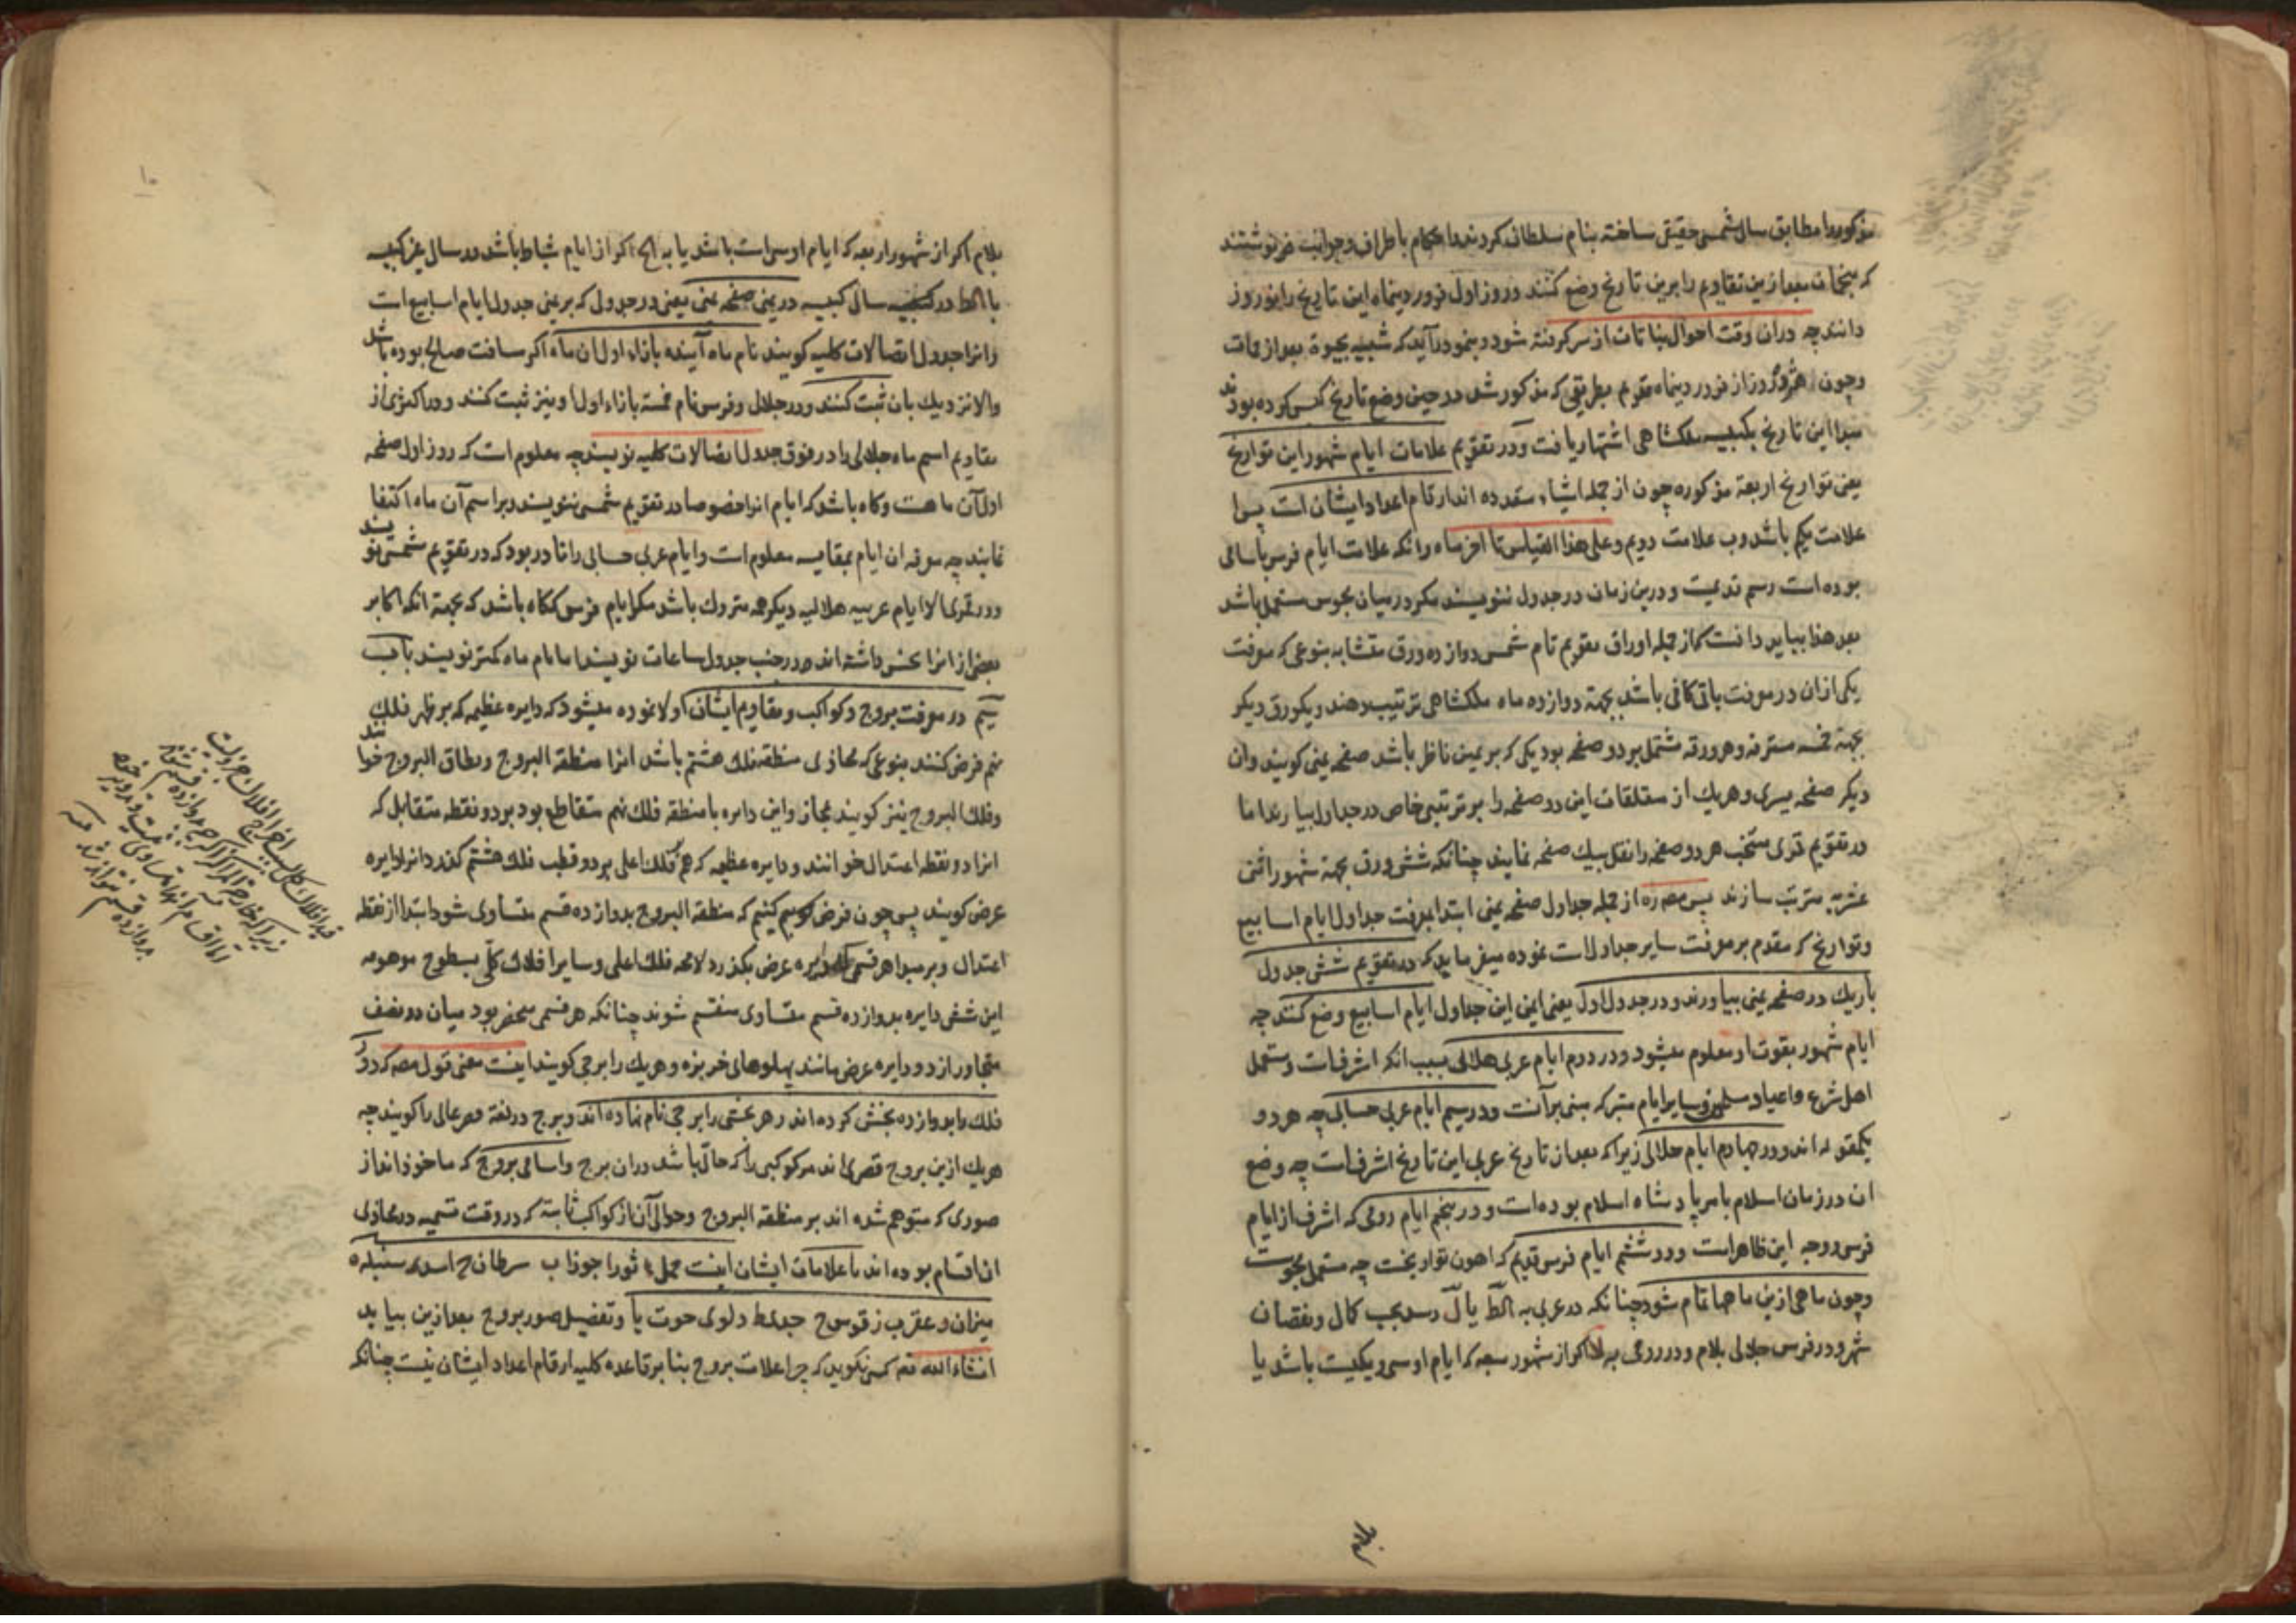 مذکور را مطابق سال شمسی حقیقی ساخته بنام سلطان کردند و احکام باطراف و جوانب فرنوشتند
که منجمان بعد ازین تقاویم را برین تاریخ وضع کنند و روز اول فروردینماه این تاریخ را نوروز
دانند چه دران وقت احوال نباتات از سر کرفته شود و در نمو در آید که شبیه بحیوة بعد از ممات
وچون هژده روز از فروردینماه قدیم بطریقی که مذکور شد در حین وضع تاریخ کبس کرده بودند
مبدا این تاریخ بکبیسه ملکشاهی اشتهار یافت ودر تقویم علامات ایام شهور این تواریخ
یعنی تواریخ اربعة مذکوره چون از جمله اشیاء متعدده اند ارقام اعداد ایشان است پس ا
علامت یکم باشد و ب علامت دویم وعلی هذا القیاس تا اخر ماه و انکه علامت ایام فرس باسامی
بوده است رسم قدیمست و درین زمان در جدول ننویسند مکر در میان مجوس مستعمل باشد
بعد هذا بباید دانست که از جمله اوراق تقویم تام شمسی دوازده ورق متشابه بنوعی که معرفت
یکی ازان در معرفت باقی کافی باشد بجهة دوازده ماه ملکشاهی ترتیب دهند و یکورق دیکر
بجهة خمسه مسترقه وهر ورقه مشتمل بر دو صفحه بود یکی که بر یمین ناظر باشد صفحه یمنی کویند وان
دیکر صفحه یسری وهریك از متعلقات این دو صفحه را بر ترتیبی خاص در جداول بیارند اما
در تقویم قمری منتخب هر دو صفحه را نقل بیك صفحه نمایند چنانکه شش ورق بجهة شهور اثنی
عشریه مترتب سازند پس مصه ره از جمله جداول صفحه یمنی ابتدا بمعرفت جداول ایام اسابیع
وتواریخ که مقدم بر معرفت سایر جداولست نموده میفرماید که در تقویم شش جدول
باریك در صفحه یمنی بیاورند و در جدول اول یعنی ایمن این جداول ایام اسابیع وضع کنند چه
ایام شهور بقوت او معلوم میشود و در دوم ایام عربی هلالی بسبب انکه اشرفست و مستعمل
اهل شرع و اعیاد مسلمین وسایر ایام متبرکه مبنی بر آنست و در سیم ایام عربی حسابی چه هر دو
یکمقوله اند و در چهارم ایام جلالی زیراکه بعد از تاریخ عربی این تاریخ اشرفست چه وضع
ان در زمان اسلام بامر پادشاه اسلام بوده است و در پنجم ایام رومی که اشرف از ایام
فرسی و وجه این ظاهر است و در ششم ایام فرس قدیم که اهون تواریخست چه مستعمل مجوست
وچون ماهی ازین ماهها تمام شود چنانکه در عربی به الکط یا ل رسد بحسب کمال و نقصان
شهر و در فرس جلالی بلام و در رومی به لا اکر از شهور سبعه که ایام او سی و یکیست باشد یا
بلام اکر از شهور اربعه که ایام او سی است باشد یا به الکح اکر از ایام شباط باشد در سال غیر کبیسه
یا الکط در سال کبیسه در یمنی صفحه یمنی یعنی در جدول که بر یمنی جدول ایام اسابیع است
وانرا جدول اتصالات کلیه کویند نام ماه آینده بازاء اول ان ماه اکر مسافت صالح بوده باشد
والا نزدیك بان ثبت کنند و در جلالی و فرس نام خمسه بازاء اول او نیز ثبت کنند و در اکثری از
تقاویم اسم ماه جلالی را در فوق جدول اتصالات کلیه نویسند چه معلوم است که روز اول صفحه
اول آن ماهست وکاه باشد که ایام انرا خصوصا در تقویم شمسی ننویسند و بر اسم آن ماه اکتفا
نمایند چه معرفه ان ایام بمقایسه معلوم است و ایام عربی حسابی را نادر بود که در تقویم شمسی نویسند
و در قمری الا ایام عربیه هلالیه دیکر همه متروك باشد مکر ایام فرس که کاه باشد که بجهة انکه اکابر
بعضی از انرا نحس داشته اند در جنب جدول ساعات نویسند اما نام ماه کمتر نویسند باب
سیم در معرفت بروج و کواکب و تقاویم ایشان اولا نموده میشود که دایره عظیمه که بر ظهر فلك
نهم فرض کنند بنوعی که محاذی منطقه فلك هشتم باشد انرا منطقة البروج ونطاق البروج خوانند
وفلك البروج نیز کویند مجاز و این دایره با منطقه فلك نهم متقاطع بود بر دو نقطه متقابل که
انرا دو نقطه اعتدال خوانند و دایره عظیمه که هم فلك اعلی بر دو قطب فلك هشتم کذرد انرا دایره
عرض کویند پس چون فرض کنیم که منطقه البروج بدوازده قسم متساوی شود ابتدا از نقطه
اعتدال و بر مبدا هر قسمی دایره عرض بکذرد لا محه فلك اعلی و سایر افلاك کلی بسطوح موهومه
این شش دایره بدوازده قسم متساوی منقسم شوند چنانکه هر قسمی منحصر بود میان دو نصف
متجاور از دو دایره عرض مانند پهلوهای خربزه وهریك را برجی کویند اینست معنی قول مصه که دور
فلك را بدوازده بخش کرده اند وهر بخشی را برجی نام نهاده اند و برج در لغة قصر عالی را کویند چه
هریك ازین بروج قصری اند مر کوکبی را که حال باشد دران برج واسامی بروج که ماخوذ اند از
صوری که متوهم شده اند بر منطقه البروج و حوالی آن از کواکب ثابته که در وقت تسمیه در محاذی
ان اقسام بوده اند با علامات ایشان اینست حمل ثور ا جوزا ب سرطان ج اسد د سنبله ه
میزان و عقرب ز قوس ح جدی ط دلو ی حوت یا وتفصیل صور بروج بعد ازین بیاید
انشاء الله تعه کسی نکوید که چرا علامت بروج بنا بر قاعده کلیه ارقام اعداد ایشان نیست چنانکه
بلام
۱۰